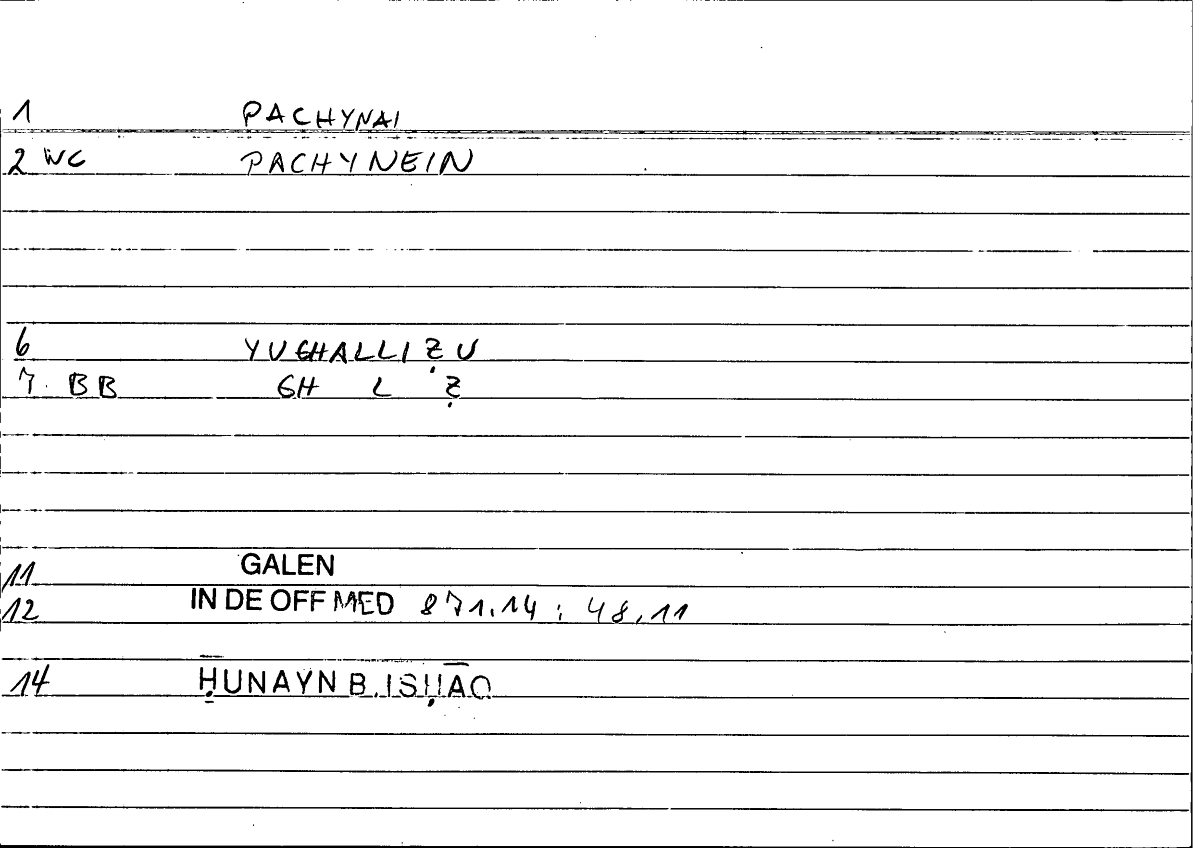 1 PACHYNAI
2 WC PACHYNEIN
6 YUGHALLIẒU
7. BB GH L Ẓ
11 GALEN
12 IN DE OFF MED 871.14 : 48,11
14 ḤUNAYN B. ISḤĀQ